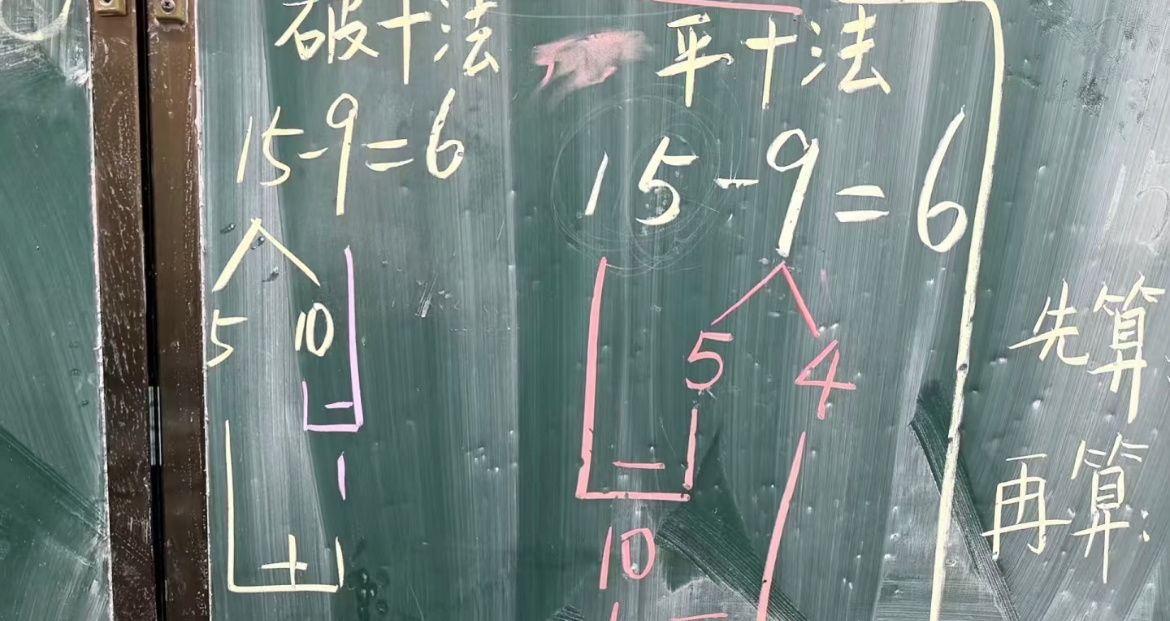 破十法
15-9=6
5 10
-
1
+
平十法
15-9=6
5 4
-
10
-
先算
再算